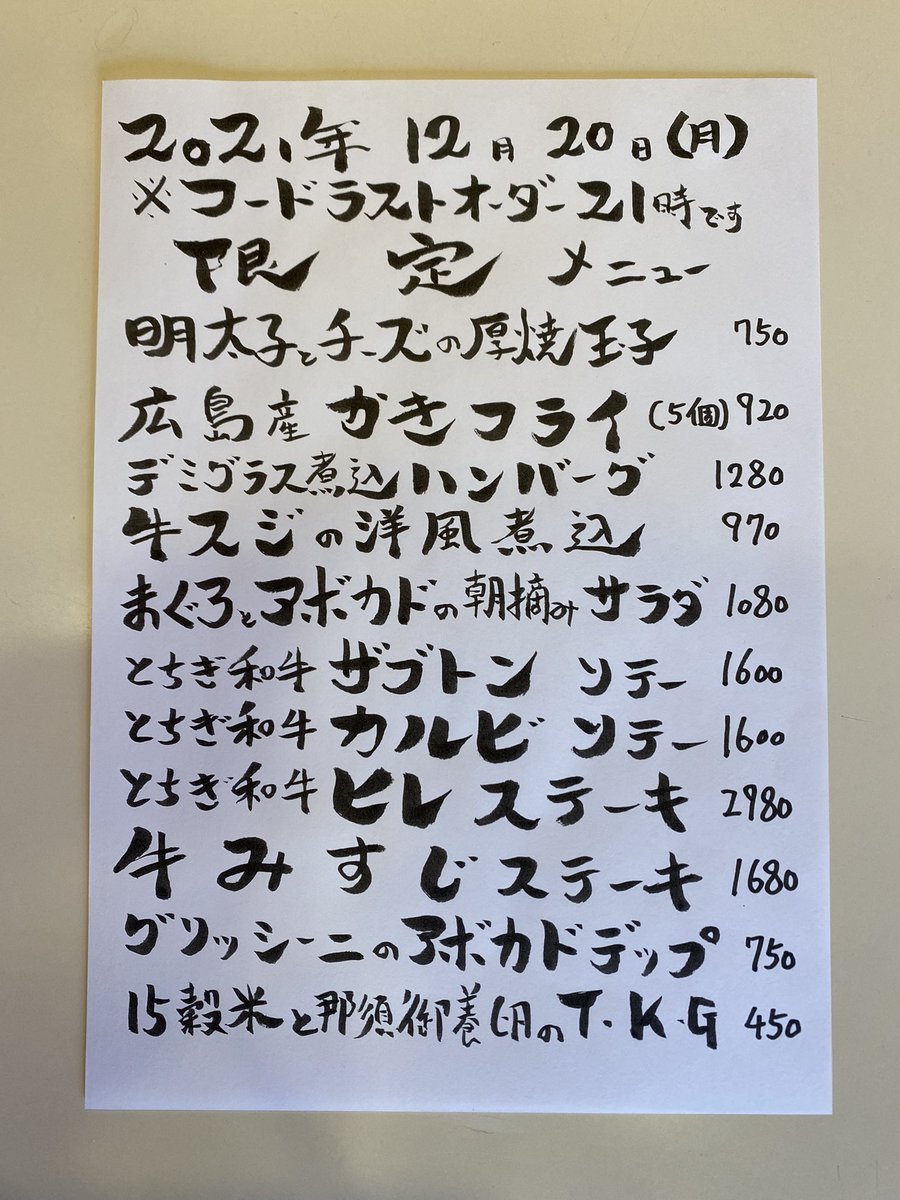 2021年 12月 20日(月)
※フードラストオーダー21時です
限定メニュー
明太子とチーズの厚焼玉子 750
広島産かきフライ(5個)920
デミグラス煮込ハンバーグ 1280
牛スジの洋風煮込 970
まぐろとアボカドの朝摘みサラダ 1080
とちぎ和牛ザブトンソテー 1600
とちぎ和牛カルビソテー 1600
とちぎ和牛ヒレステーキ 2980
牛みすじステーキ 1680
グリッシーニのアボカドデップ 750
15穀米と那須御養卵のT.K.G 450